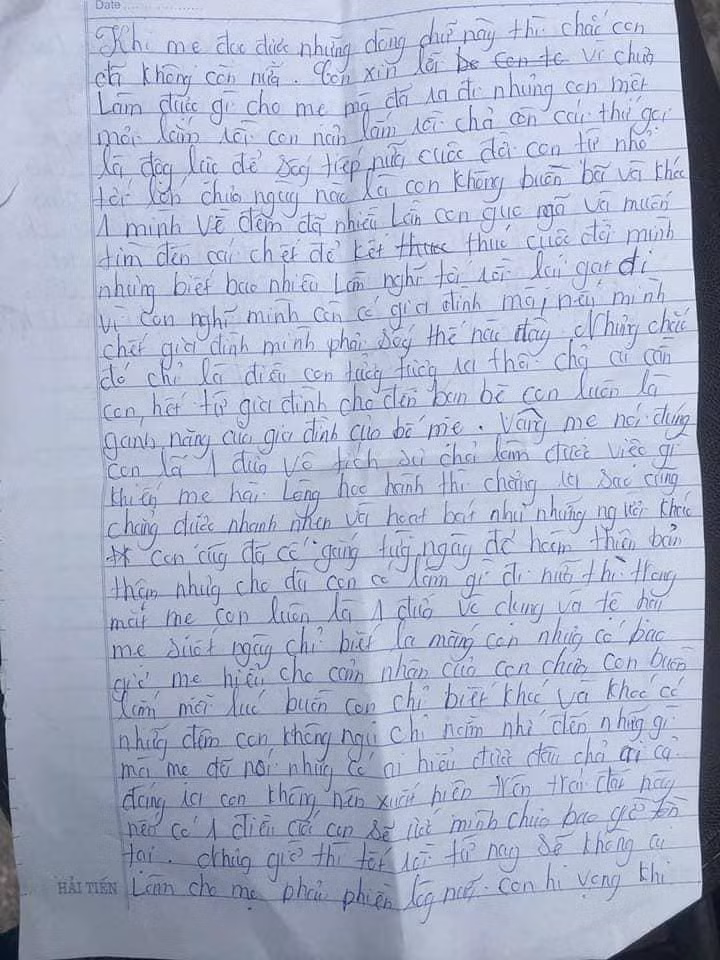 Date
Khi mẹ đọc được những dòng chữ này thì chắc con
đã không còn nữa. Con xin lỗi be con to vì chưa
Làm được gì cho mẹ mà đã ra đi nhưng con mệt
mỏi lắm rồi con nản lắm rồi chả còn cái thứ gọi
là động lực để sốg tiếp nữa cuộc đời con từ nhỏ
tới lớn chưa ngày nào là con không buồn bã và khóc
1 mình về đêm đã nhiều Lần con gục ngã và muốn
tìm đến cái chết để kết thươc thúc cuộc đời mình
nhưng biết bao nhiêu Lần nghĩ tới rồi lại gạt đi
vì con nghĩ mình còn có gia đình mà, nếu mình
chết gia đình mình phải sốg thế nào đây. Nhưng chắc
đó chỉ là điều con tưởng tượng ra thôi chả ai cần
con, hết từ gia đình cho đến bạn bè con luôn là
gánh nặng của gia đình của bố mẹ. Vâng mẹ nói đúng
con là 1 đứa vô tích sự chả làm được việc gì
khiến mẹ hài Lòng học hành thì chẳng ra sao cũng
chẳng được nhanh nhẹn và hoạt bát như những người khác
** con cũg đã cố gắng từg ngày để hoàn thiện bản
thân nhưg cho dù con có làm gì đi nữa thì trong
mắt mẹ con luôn là 1 đứa vô dụng và tệ hại
mẹ suốt ngày chỉ biết la mắng con nhưg có bao
giờ mẹ hiểu cho cảm nhận của con chưa con buồn
lắm mỗi lúc buồn con chỉ biết khóc và khóc có
những đêm con không ngủ chỉ nằm nhớ đến những gì
mà mẹ đã nói nhưg có ai hiểu được đâu chả ai cả
đáng ra con không nên xuất hiện trên trái đất này
nếu có 1 điều ước con sẽ ước mình chưa bao giờ tồn
tại. Nhưg giờ thì tốt rồi từ nay sẽ không ai
HẢI TIẾN Làm cho mẹ phải phiền lòg nữa. con hi vọng khi